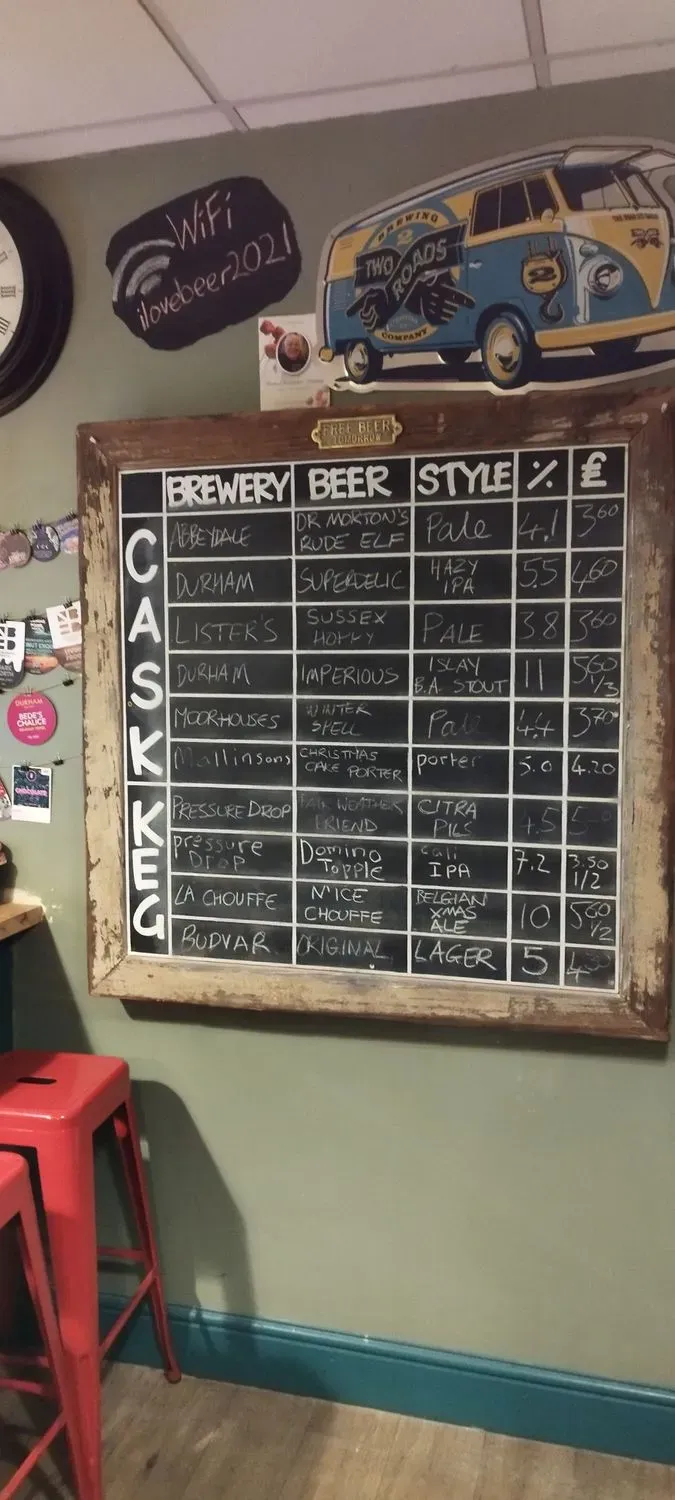 WiFi
ilovebeer2021
BREWING
2
TWO
ROADS
COMPANY
2
FREE BEER
TOMORROW
BREWERY BEER STYLE % £
CASK
ABBEYDALE DR MORTON'S RUDE ELF Pale 4.1 3.60
DURHAM SUPERDELIC HAZY IPA 5.5 4.60
LISTER'S SUSSEX HOPPY PALE 3.8 3.60
DURHAM IMPERIOUS ISLAY B.A. STOUT 11 5.60 1/3
MOORHOUSES WINTER SPELL Pale 4.4 3.70
Mallinsons CHRISTMAS CAKE PORTER porter 5.0 4.20
KEG
PRESSURE DROP FAIR WEATHER FRIEND CITRA PILS 4.5
pressure Drop Domino Topple Cali IPA 7.2 3.50 1/2
LA CHOUFFE N'ICE CHOUFFE BELGIAN XMAS ALE 10 5.60 1/2
BUDVAR ORIGINAL LAGER 5
DURHAM
BEDE'S
CHALICE
CHOCOLATE